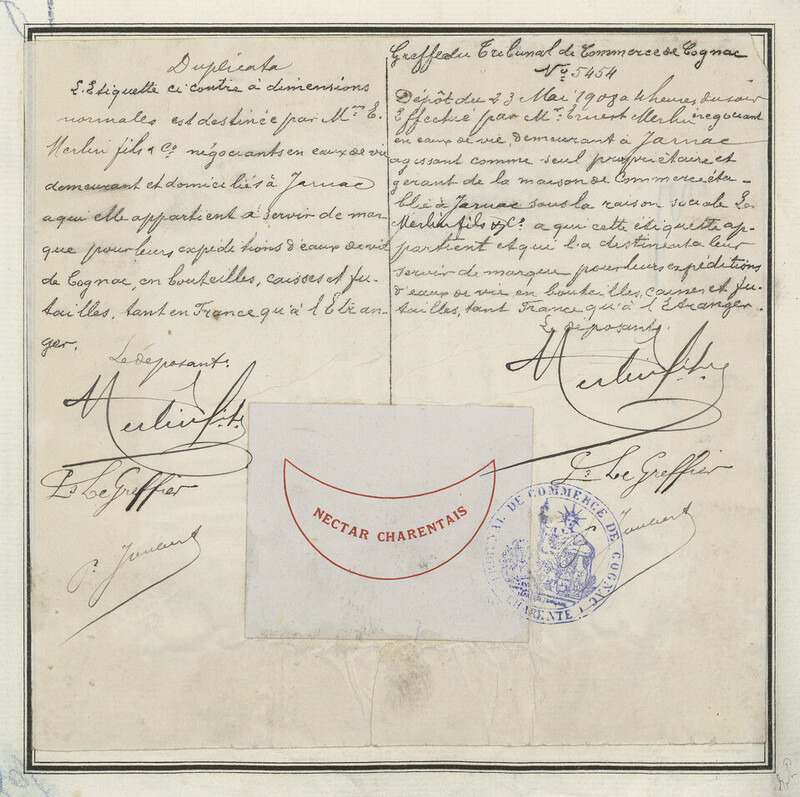 Duplicata
L'Etiquette ci contre à dimensions
normales est destinée par Mrs E.
Merlin fils & Co. négociants en eaux de vie
demeurant et domiciliés à Jarnac
a qui elle appartient à servir de mar-
que pour leurs expéditions d'eaux de vie
de Cognac, en bouteilles, caisses et fu-
tailles, tant en France qu'à l'Etran-
ger.
Le déposant.
Merlin fils
Le Greffier
Greffe du Tribunal de Commerce de Cognac
No. 5454
Dépôt du 23 Mai 1908 a 4 heures du soir
Effectué par Mr. Ernest Merlin négociant
en eaux de vie, demeurant à Jarnac
agissant comme seul propriétaire et
gérant de la maison de Commerce éta-
blie à Jarnac sous la raison sociale
Merlin fils & Co. a qui cette étiquette ap-
partient et qui l'a destine a leur
servir de marque pour leurs expéditions
d'eaux de vie en bouteilles, caisses et fu-
tailles, tant France qu'à l'Etranger.
Le déposant.
Merlin fils
Le Greffier
NECTAR CHARENTAIS
TRIBUNAL DE COMMERCE DE COGNAC
CHARENTE